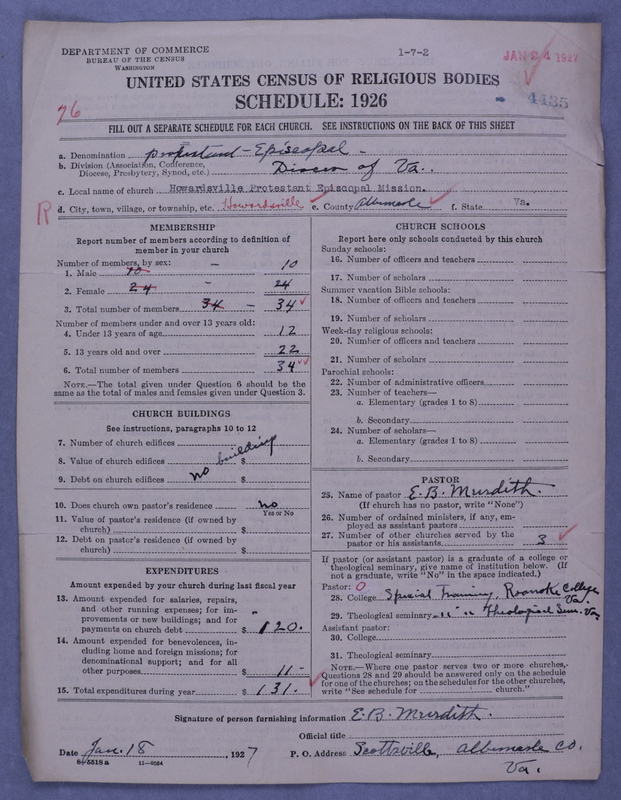 DEPARTMENT OF COMMERCE
BUREAU OF THE CENSUS
WASHINGTON
1-7-2
JAN 24 1927
UNITED STATES CENSUS OF RELIGIOUS BODIES
SCHEDULE: 1926
76
4435
FILL OUT A SEPARATE SCHEDULE FOR EACH CHURCH. SEE INSTRUCTIONS ON THE BACK OF THIS SHEET
a. Denomination Protestant-Episcopal
b. Division (Association, Conference, Diocese, Presbytery, Synod, etc.) Diocese of Va.
c. Local name of church Howardsville Protestant Episcopal Mission.
R d. City, town, village, or township, etc. Howardsville e. County Albemarle f. State Va.
MEMBERSHIP
Report number of members according to definition of
member in your church
Number of members, by sex:
1. Male 10 - 10
2. Female 24 - 24
3. Total number of members 34 - 34
Number of members under and over 13 years old:
4. Under 13 years of age 12
5. 13 years old and over 22
6. Total number of members 34
NOTE.—The total given under Question 6 should be the
same as the total of males and females given under Question 3.
CHURCH BUILDINGS
See instructions, paragraphs 10 to 12
7. Number of church edifices
8. Value of church edifices $
9. Debt on church edifices $
no building
10. Does church own pastor's residence no
Yes or No
11. Value of pastor's residence (if owned by
church) $
12. Debt on pastor's residence (if owned by
church) $
EXPENDITURES
Amount expended by your church during last fiscal year
13. Amount expended for salaries, repairs,
and other running expenses; for im-
provements or new buildings; and for
payments on church debt $ 120.
14. Amount expended for benevolences, in-
cluding home and foreign missions; for
denominational support; and for all
other purposes $ 11-
15. Total expenditures during year $ 131.
CHURCH SCHOOLS
Report here only schools conducted by this church
Sunday schools:
16. Number of officers and teachers
17. Number of scholars
Summer vacation Bible schools:
18. Number of officers and teachers
19. Number of scholars
Week-day religious schools:
20. Number of officers and teachers
21. Number of scholars
Parochial schools:
22. Number of administrative officers
23. Number of teachers—
a. Elementary (grades 1 to 8)
b. Secondary
24. Number of scholars—
a. Elementary (grades 1 to 8)
b. Secondary
PASTOR
25. Name of pastor E. B. Murdith.
(If church has no pastor, write "None")
26. Number of ordained ministers, if any, em-
ployed as assistant pastors
27. Number of other churches served by the
pastor or his assistants 3
If pastor (or assistant pastor) is a graduate of a college or
theological seminary, give name of institution below. (If
not a graduate, write "No" in the space indicated.)
Pastor: O
28. College Special Training, Roanoke College Va.
29. Theological seminary " " Theological Sem. Va.
Assistant pastor:
30. College
31. Theological seminary
NOTE.—Where one pastor serves two or more churches,
Questions 28 and 29 should be answered only on the schedule
for one of the churches; on the schedules for the other churches,
write "See schedule for church."
Signature of person furnishing information E. B. Murdith.
Official title
Date Jan. 18, 1927 P. O. Address Scottsville, Albemarle Co.
Va.
8-5518a 11-9054